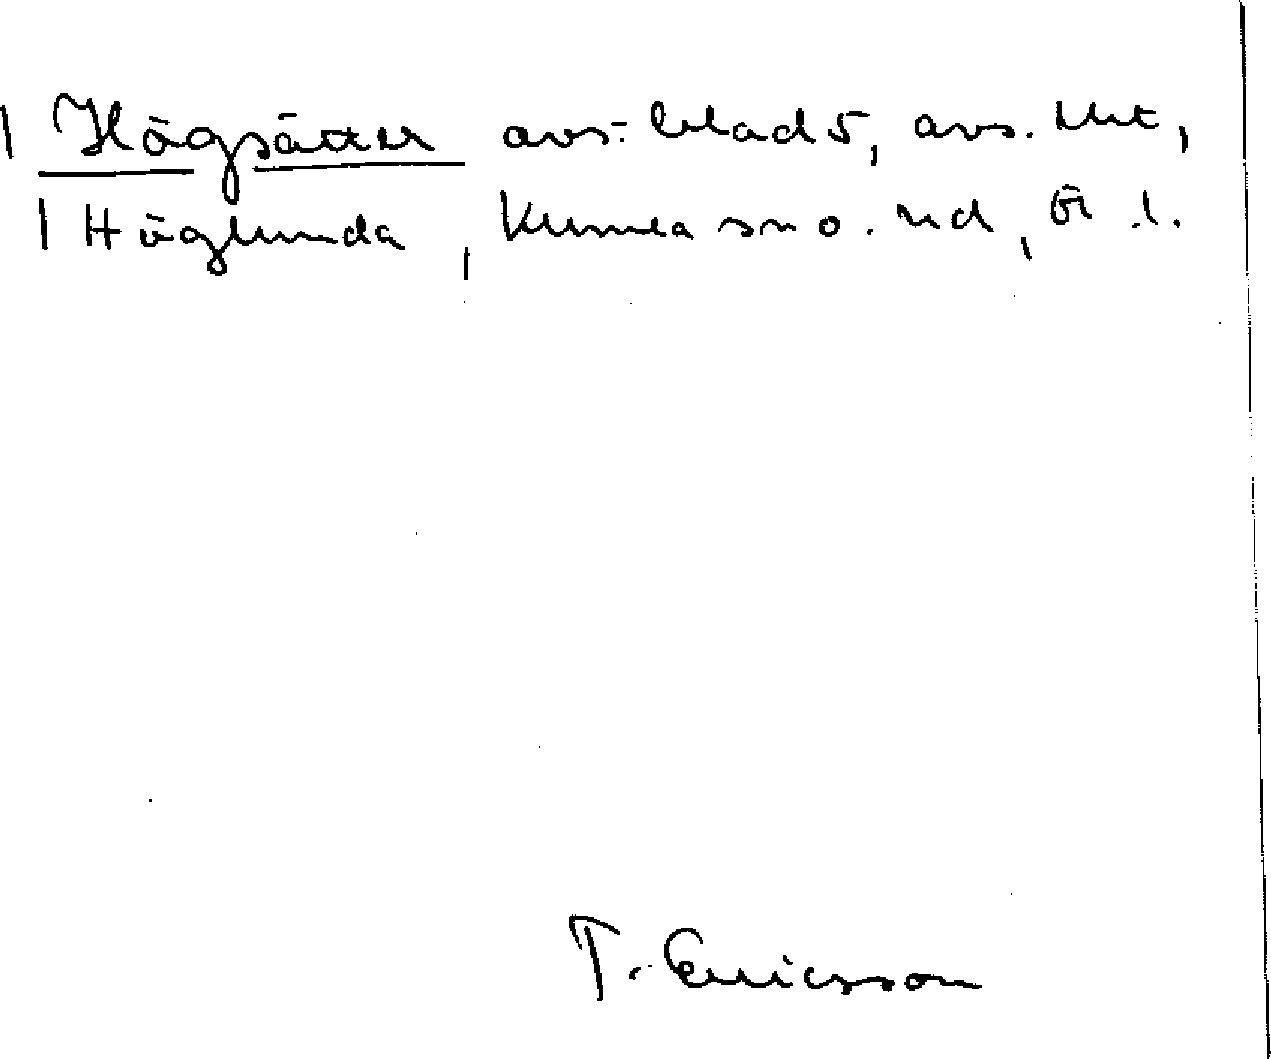 Högsätter avs. blad 5, avs. tht,
Höglunda, Kumla sn o. hd, Ör. l.
T. Ericsson